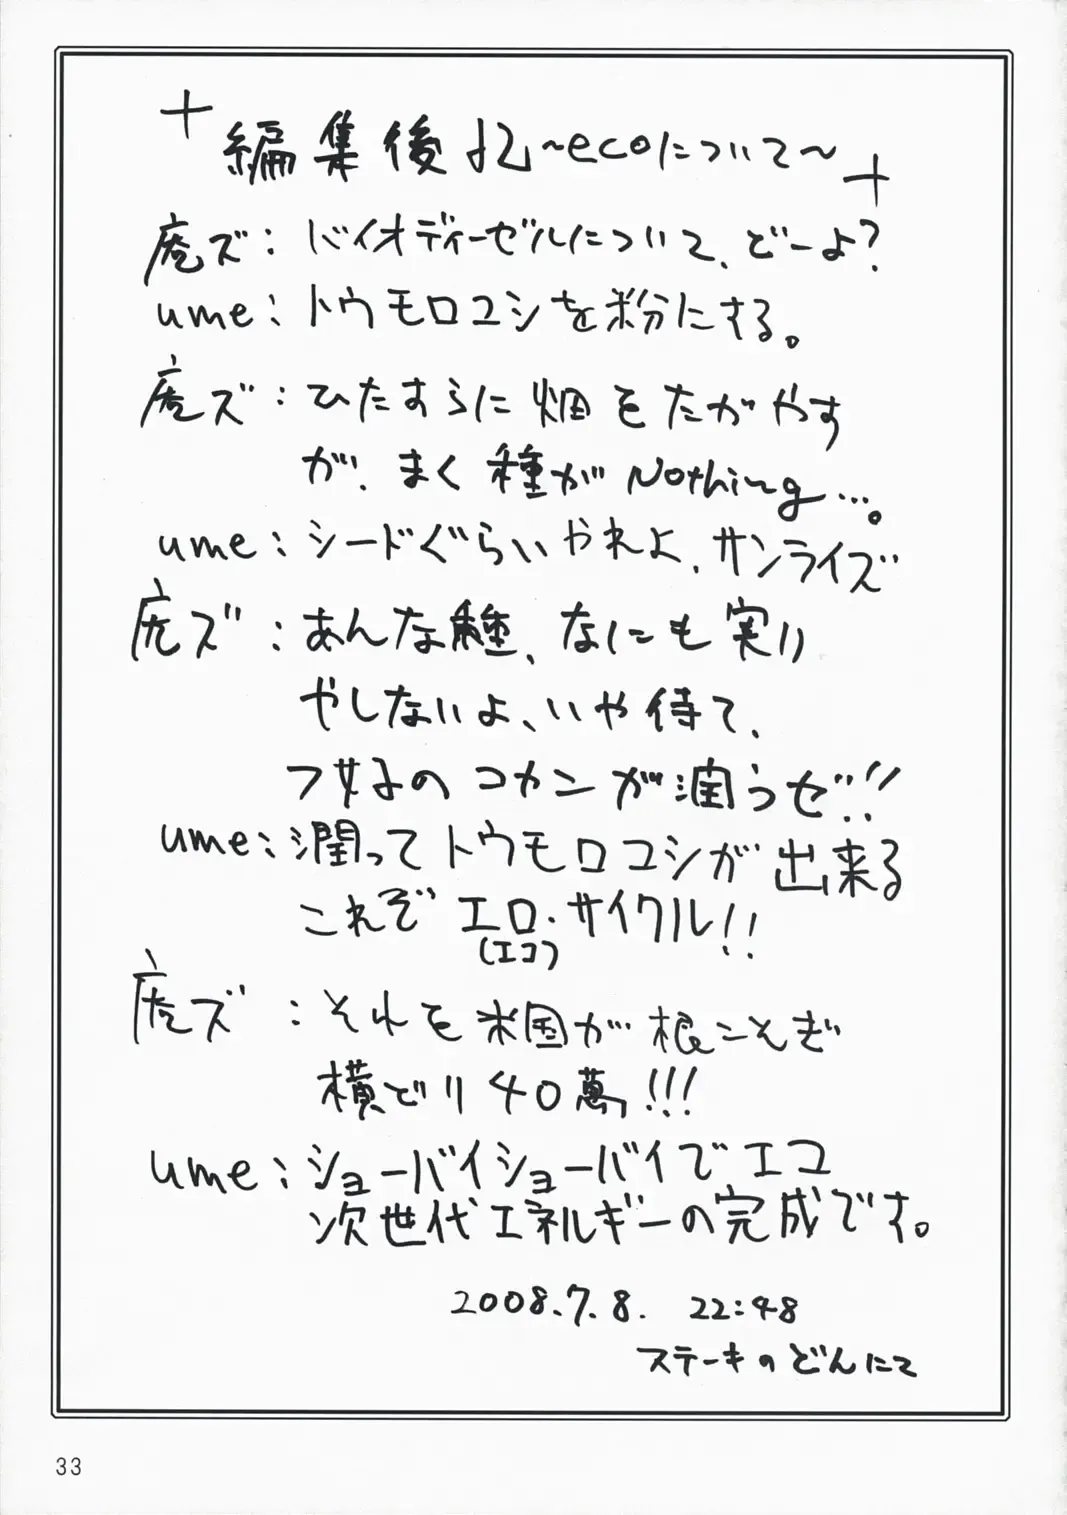 編集後記~ecoについて~
虎ズ:バイオディーゼルについて、どーよ?
ume:トウモロコシを粉にする。
虎ズ:ひたすらに畑をたがやす
が、まく種がNothing…。
ume:シードぐらいやれよ、サンライズ
虎ズ:あんな種、なにも実り
やしないよ、いや待て、
フ女子のコカンが潤うゼ!!
ume:潤ってトウモロコシが出来る
これぞエロ・サイクル!!
(エコ)
虎ズ:それを米国が根こそぎ
横どり40萬!!!
ume:ショーバイショーバイでエコ
次世代エネルギーの完成です。
2008.7.8. 22:48
ステーキのどんにて
33